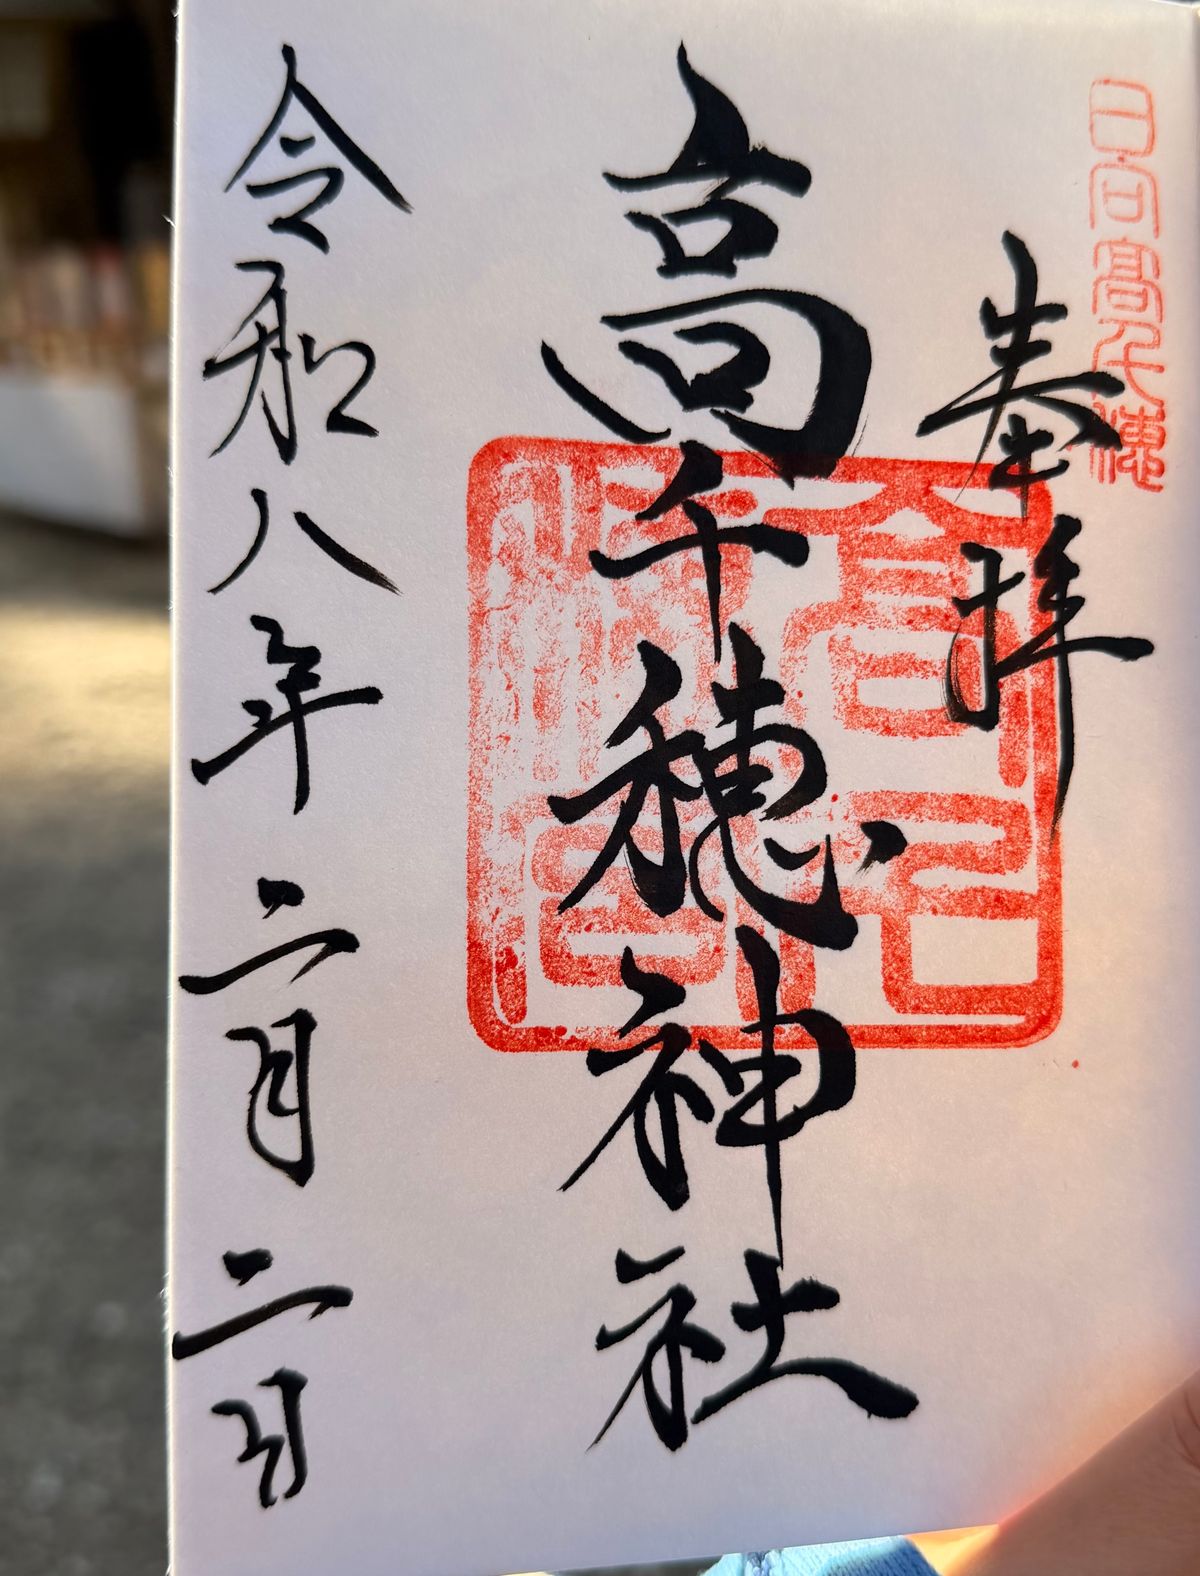 日向高千穂
奉拝
高千穂神社
令和八年二月二日